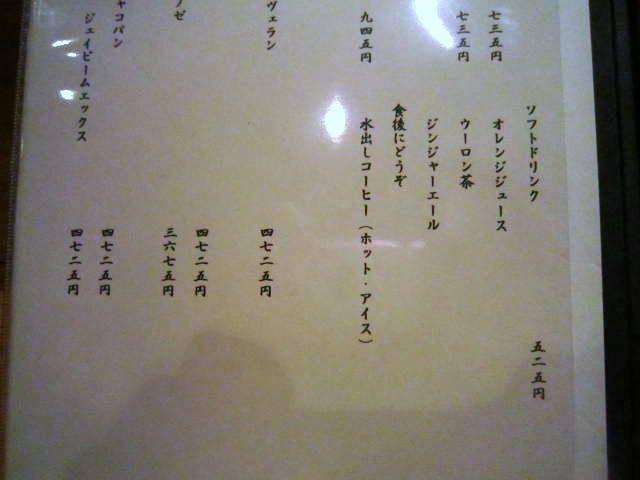 七三五円
七三五円
九四五円
ソフトドリンク
五二五円
オレンジジュース
ウーロン茶
ジンジャーエール
食後にどうぞ
水出しコーヒー（ホット・アイス）
ヴェラン
四七二五円
四七二五円
ゼ
三六七五円
コパン
四七二五円
ジェイピーエムエックス
四七二五円